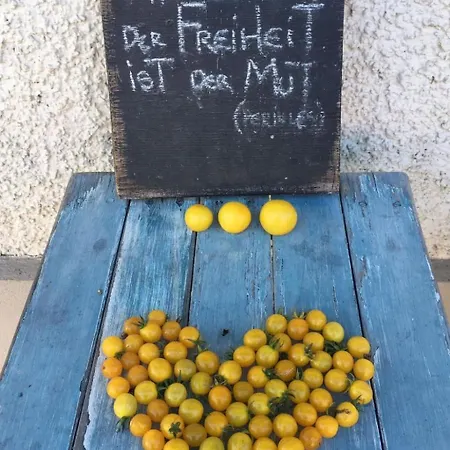 DER FREIHEIT
iST DER MUT
(PERIKLES)